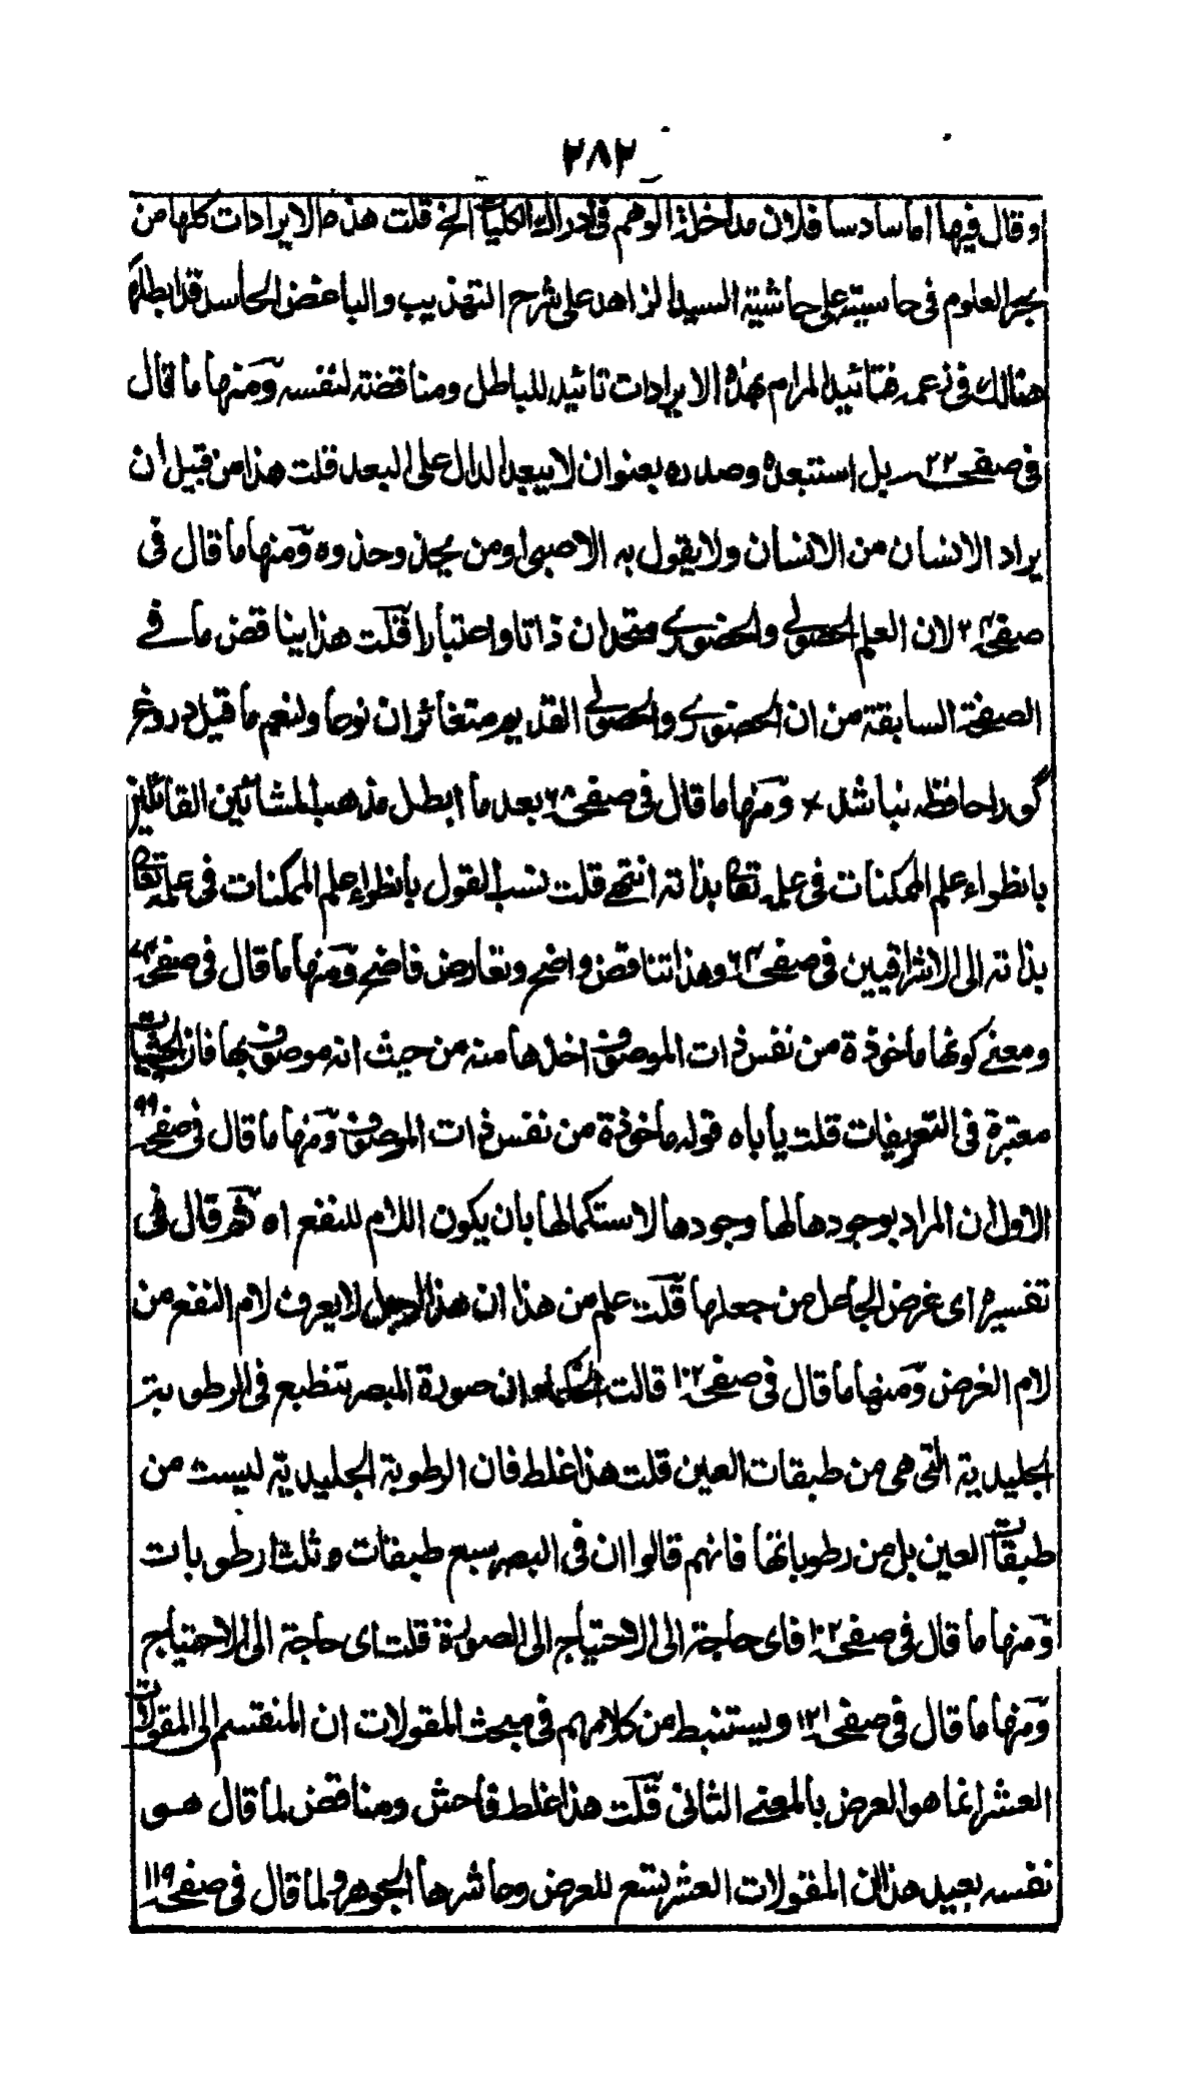 ٢٨٢
وقال فيها اما سادسا فلان مداخلة الوهم في ادراك الكليات الخ قلت هذه الايرادات كلها من
بحر العلوم في حاشيته على حاشية السيد الزاهد على شرح التهذيب والباغض الحاسد قد ابطله
هنالك في زعمه فتائيد المرام بهذه الايرادات تائيد للباطل ومناقضته لنفسه ومنها ما قال
في صفحة ٢٢ بل استبعده وصدره بعنوان لا يبعد الدال على البعد قلت هذا من قبيل ان
يراد الانسان من الانسان ولا يقول به الا صبي او من يحذو حذوه ومنها ما قال في
صفحة لان العلم الحصولي والحضوري متحدان ذاتا واعتبارا قلت هذا يناقض ما في
الصفحة السابقة من ان الحضوري والحصولي القديم متغائران نوعا ولنعم ما قيل دروغ
گو را حافظه نباشد ومنها ما قال في صفحة ٦٨ بعد ما ابطل مذهب المشائين القائلين
بانطواء علم الممكنات في علمه تعالى بذاته انتهى قلت نسب القول بانطواء علم الممكنات في علمه تعالى
بذاته الى الاشراقيين في صفحة وهذا تناقض واضح وتعارض فاضح ومنها ما قال في صفحة
ومعنى كونها ماخوذة من نفس ذات الموصوف اخذها منه من حيث انه موصوف بها فان الحيثيات
معتبرة في التعريفات قلت يأباه قوله ماخوذة من نفس ذات الموصوف ومنها ما قال في صفحة ٩٩
الاول ان المراد بوجودها لها وجودها لاستكمالها بان يكون اللام للنفع اه ثم قال في
تفسيره اى غرض الجاعل من جعلها قلت علم من هذا ان هذا الرجل لا يعرف لام النفع من
لام الغرض ومنها ما قال في صفحة ١٠٢ قالت الحكماء ان صورة المبصر تنطبع في الرطوبة
الجليدية التي هي من طبقات العين قلت هذا غلط فان الرطوبة الجليدية ليست من
طبقات العين بل من رطوباتها فانهم قالوا ان في البصر سبع طبقات وثلث رطوبات
ومنها ما قال في صفحة ١٠٢ فاى حاجة الى الاحتياج الى الصورة قلت اى حاجة الى الاحتياج
ومنها ما قال في صفحة ١٢١ ويستنبط من كلامهم في مبحث المقولات ان المنقسم الى المقولات
العشر انما هو العرض بالمعنى الثاني قلت هذا غلط فاحش ومناقض لما قال هو
نفسه بعيد هذا ان المقولات العشر تسع للعرض وعاشرها الجوهر ولما قال في صفحة ١١٩